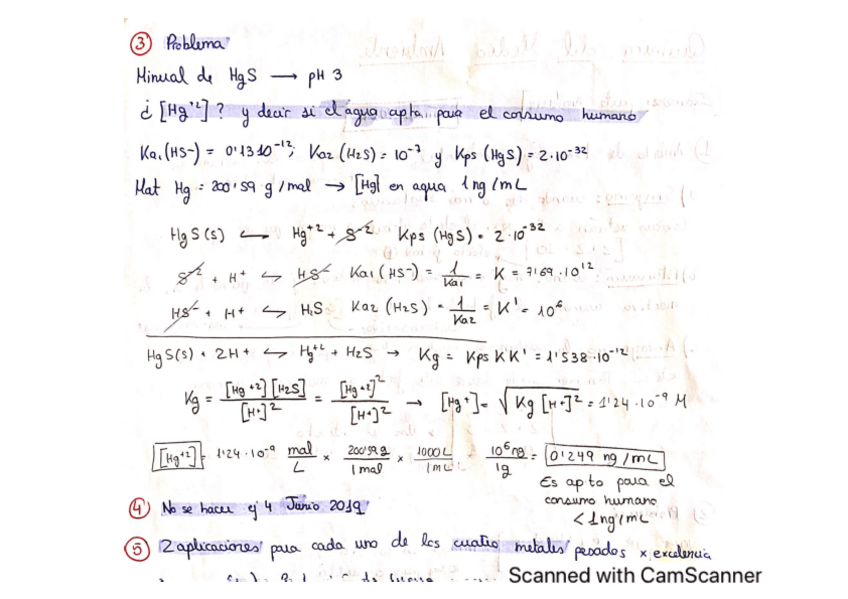 ③ Problema
Minual de HgS → pH 3
¿ [Hg⁺²] ? y decir si el agua apta para el consumo humano
Ka₁ (HS⁻) = 0'13 10⁻¹²; Ka₂ (H₂S) = 10⁻⁷ y Kps (HgS) = 2·10⁻³²
Mat Hg = 200'59 g/mol → [Hg] en agua 1 ng/mL
HgS(s) ↔ Hg⁺² + S⁻² Kps (HgS) = 2·10⁻³²
S⁻² + H⁺ ↔ HS⁻ Ka₁ (HS⁻) = 1/Ka₁ = K = 7'69·10¹²
HS⁻ + H⁺ ↔ H₂S Ka₂ (H₂S) = 1/Ka₂ = K' = 10⁶
HgS(s) + 2H⁺ ↔ Hg⁺² + H₂S → Kg = Kps K K' = 1'538·10⁻¹²
Kg = [Hg⁺²][H₂S]/[H⁺]² = [Hg⁺²]²/[H⁺]² → [Hg⁺] = √Kg [H⁺]² = 1'24·10⁻⁹ M
[Hg⁺²] = 1'24·10⁻⁹ mol/L × 200'59 g/1 mol × 1000 L/1 mL · 10⁶ ng/1g = 0'249 ng/mL
Es apto para el
consumo humano
< 1 ng/mL
④ No se hace ej 4 Junio 2019
⑤ 2 aplicaciones para cada uno de los cuatro metales pesados x excelencia
Scanned with CamScanner